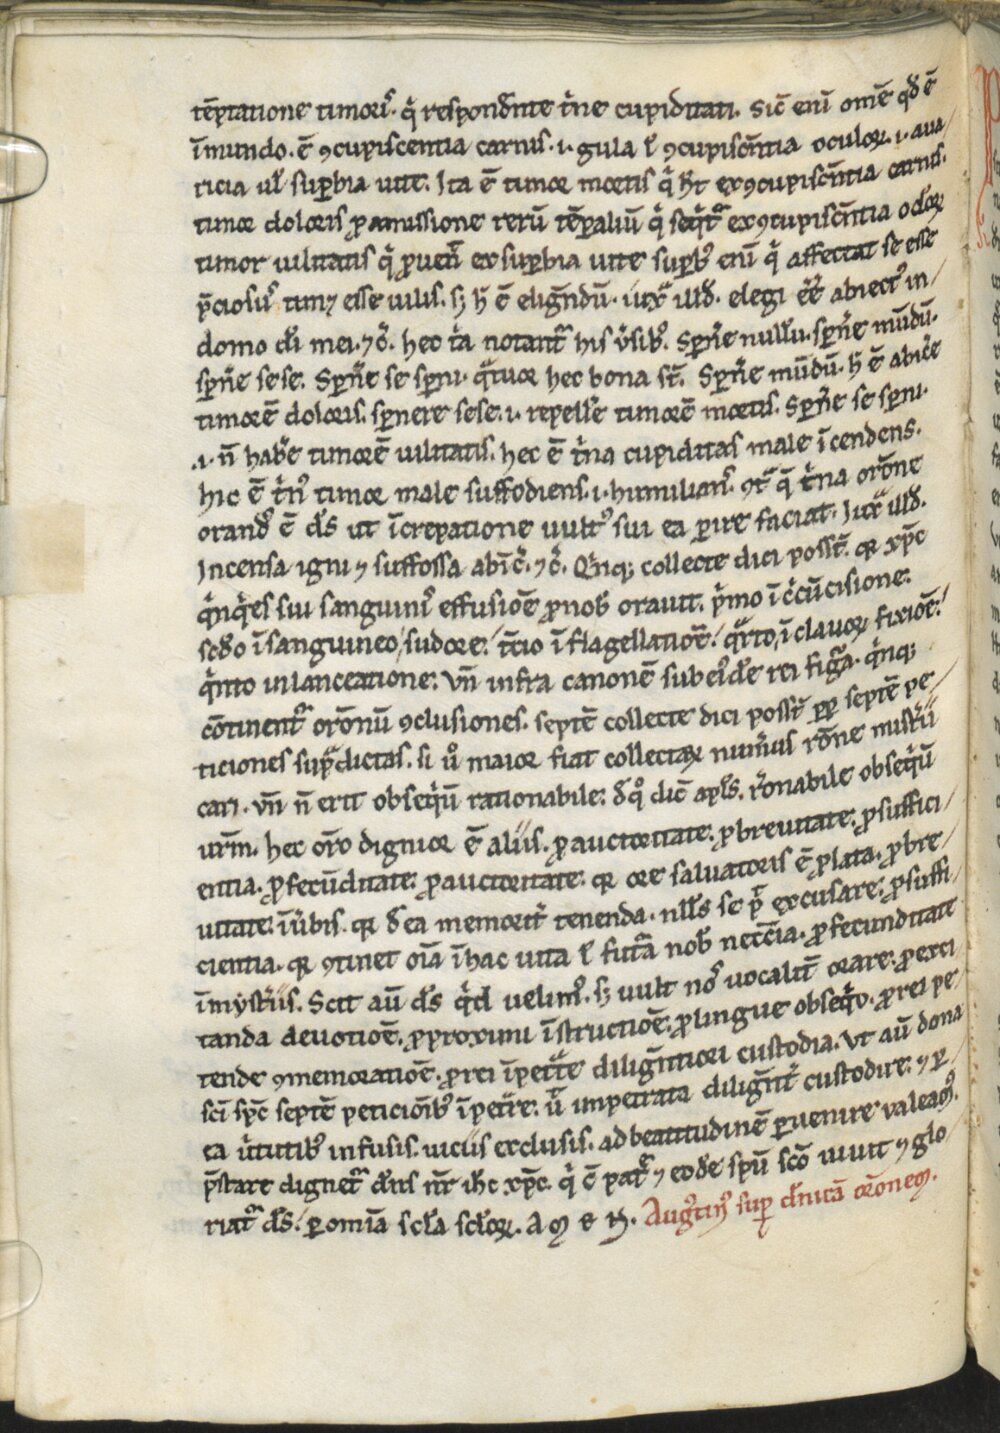 te̅ptatione timoris. q̇ respond̅nte t̅ne cupiditati. Sic̅ eni̅ om̅e qd̅ e̅
i̅mundo. e̅ ꝯcupiscentia carnis. i. gula ł ꝯcupisc̅ntia oculoꝝ. i. aua/
ricia ul̅ sup̅bia uite. Ita e̅ timor mortis q̇ h̅t exꝯcupisc̅ntia carnis.
timor doloris ꝓ amissione reru̅ te̅ꝑaliu̅ q̇ seq̅t᷑ exꝯcupisc̅ntia oc̅loꝝ
timor uilitatis q̇ ꝓuen̅ exsup̅bia uite sup̅bꝰ eni̅ q̇ affectat se esse
p̅ciosu᷑ timꝫ esse uilis. sꝫ h̅ e̅ elig̅ndu̅. iux̅ illd̅. elegi e̅e̅ abiectꝰ in/
domo di̅ mei. ⁊c̅. hec t̅a notant᷑ his v̅sibꝰ. Sp̅ne̅ nullu̅. sp̅ne̅ mu̅du̅.
sp̅ne̅ sese. Sp̅ne̅ se sp̅ni. q̅tuor hec bona st̅. Sp̅ne̅ mu̅du̅. h̅ e̅ abic̅e
timore̅ doloris. sp̅nere sese. i. repell̅e timore̅ mortis. Sp̅ne̅ se sp̅ni.
.i. n̅ hab̅e timore̅ uilitatis. hec e̅ t̅na cupiditas male i̅cendens.
hic e̅ t̅nꝰ timor male suffodiens. i. humilians. ꝯt̅ q̅ t̅na oro̅ne
orandꝰ e̅ ds̅ ut i̅crepatione uultꝰ sui ea ꝑire faciat. Iux̅ illd̅.
Incensa igni ⁊ suffossa abi̅c̅. ⁊c̅. Qi̅nqꝫ collecte dici poss̅t. qꝛ xp̅c
q̇nq̇es sui sanguinis effusio̅e ꝓnob̅ orauit. ṗmo i̅ċcu̅cisione.
scd̅o i̅sanguineo/sudore. t̅cio i̅flagellatio̅e. q̅rto, i̅clauoꝝ fixio̅e.
q̇nto inlanceatione. Vn̅ infra canone̅ sub eiꝰd̅e rei figa᷑. q̇nqꝫ
co̅tinent᷑ oro̅nu̅ ꝯclusiones. septe̅ collecte dici poss̅t ꝓꝑ septe̅ pe/
ticiones sup᷑dictas. si u̇ maior fiat collectaꝝ num̅us ro̅ne mist̅ii̅
cari. vn̅ n̅ erit obseq̇u̅ rationabile. d̅q̇ dic̅ apl̅s. r̅onabile obseq̇u̅
ur̅m. hec or̅o dignior e̅ aliis. ꝓ auctoritate. ꝓ breuitate. ꝓ suffici/
entia. ꝓ fecu̅ditate. ꝓ auctoritate. qꝛ ore saluatoris e̅ ꝓlata. ꝓ bre/
uitate. i̅u̅bis. qꝛ d̅ ea memorit̅ tenenda. nll̅s se p̅ excusare. ꝓ suffi/
cientia. qꝛ ꝯtinet oi̅a i̅hac uita ł futa᷑ nob̅ necc̅ia. ꝓ fecunditate
i̅mist̅iis. Scit au̅ ds̅ q̇d uelimꝰ. sꝫ uult nos uocalit̅ orare. ꝓ exci/
tanda deuotio̅e. ꝓ ꝓximi i̅structio̅e. ꝓ lingue obseq̇o. ꝓ rei pe/
tende ꝯmemoratio̅e. ꝓ rei i̅petᷓte dilige̅tiori custodia. Vt au̅ dona
sci̅ spc̅ septe̅ peticio̅ibꝰ i̅pet̅re. u̅ impetrata dilig̅nt̅ custodire. ⁊ ꝑ
ea u̇tutibꝰ infusis. uiciis exclusis. ad beatitudine̅ ꝑuenire valeamꝰ.
p̅stare dignet᷑ dn̅s nr̅ ih̅c xp̅c. q̇ c̅ patᷓ ⁊ eod̅e spu̅ sco̅ uiuit ⁊ glo/
riat᷑ ds̅. ꝑ omi̅a sc̅la sc̅loꝝ. A M E N. Augꝰtinꝰ suꝑ dn̅ica̅ or̅onem.